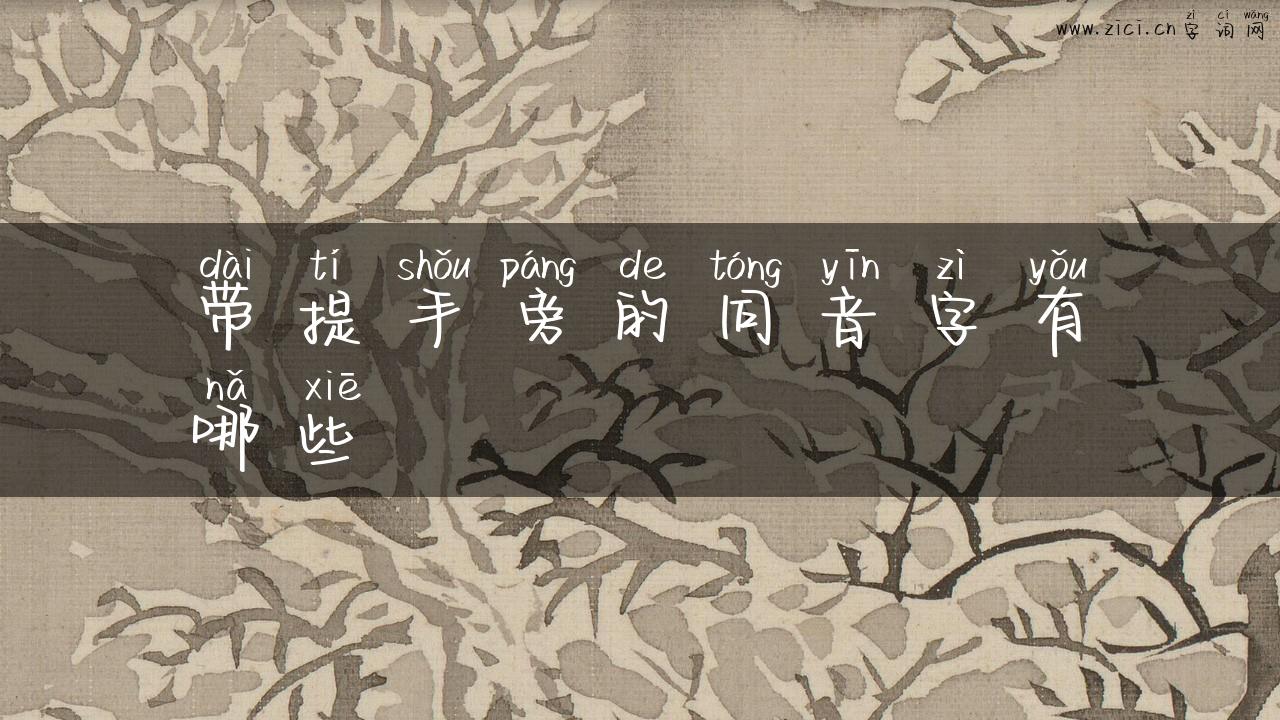 zì cí wǎng
www.zici.cn 字 词 网
dài tí shǒu páng de tóng yīn zì yǒu
带 提 手 旁 的 同 音 字 有
nǎ xiē
哪 些